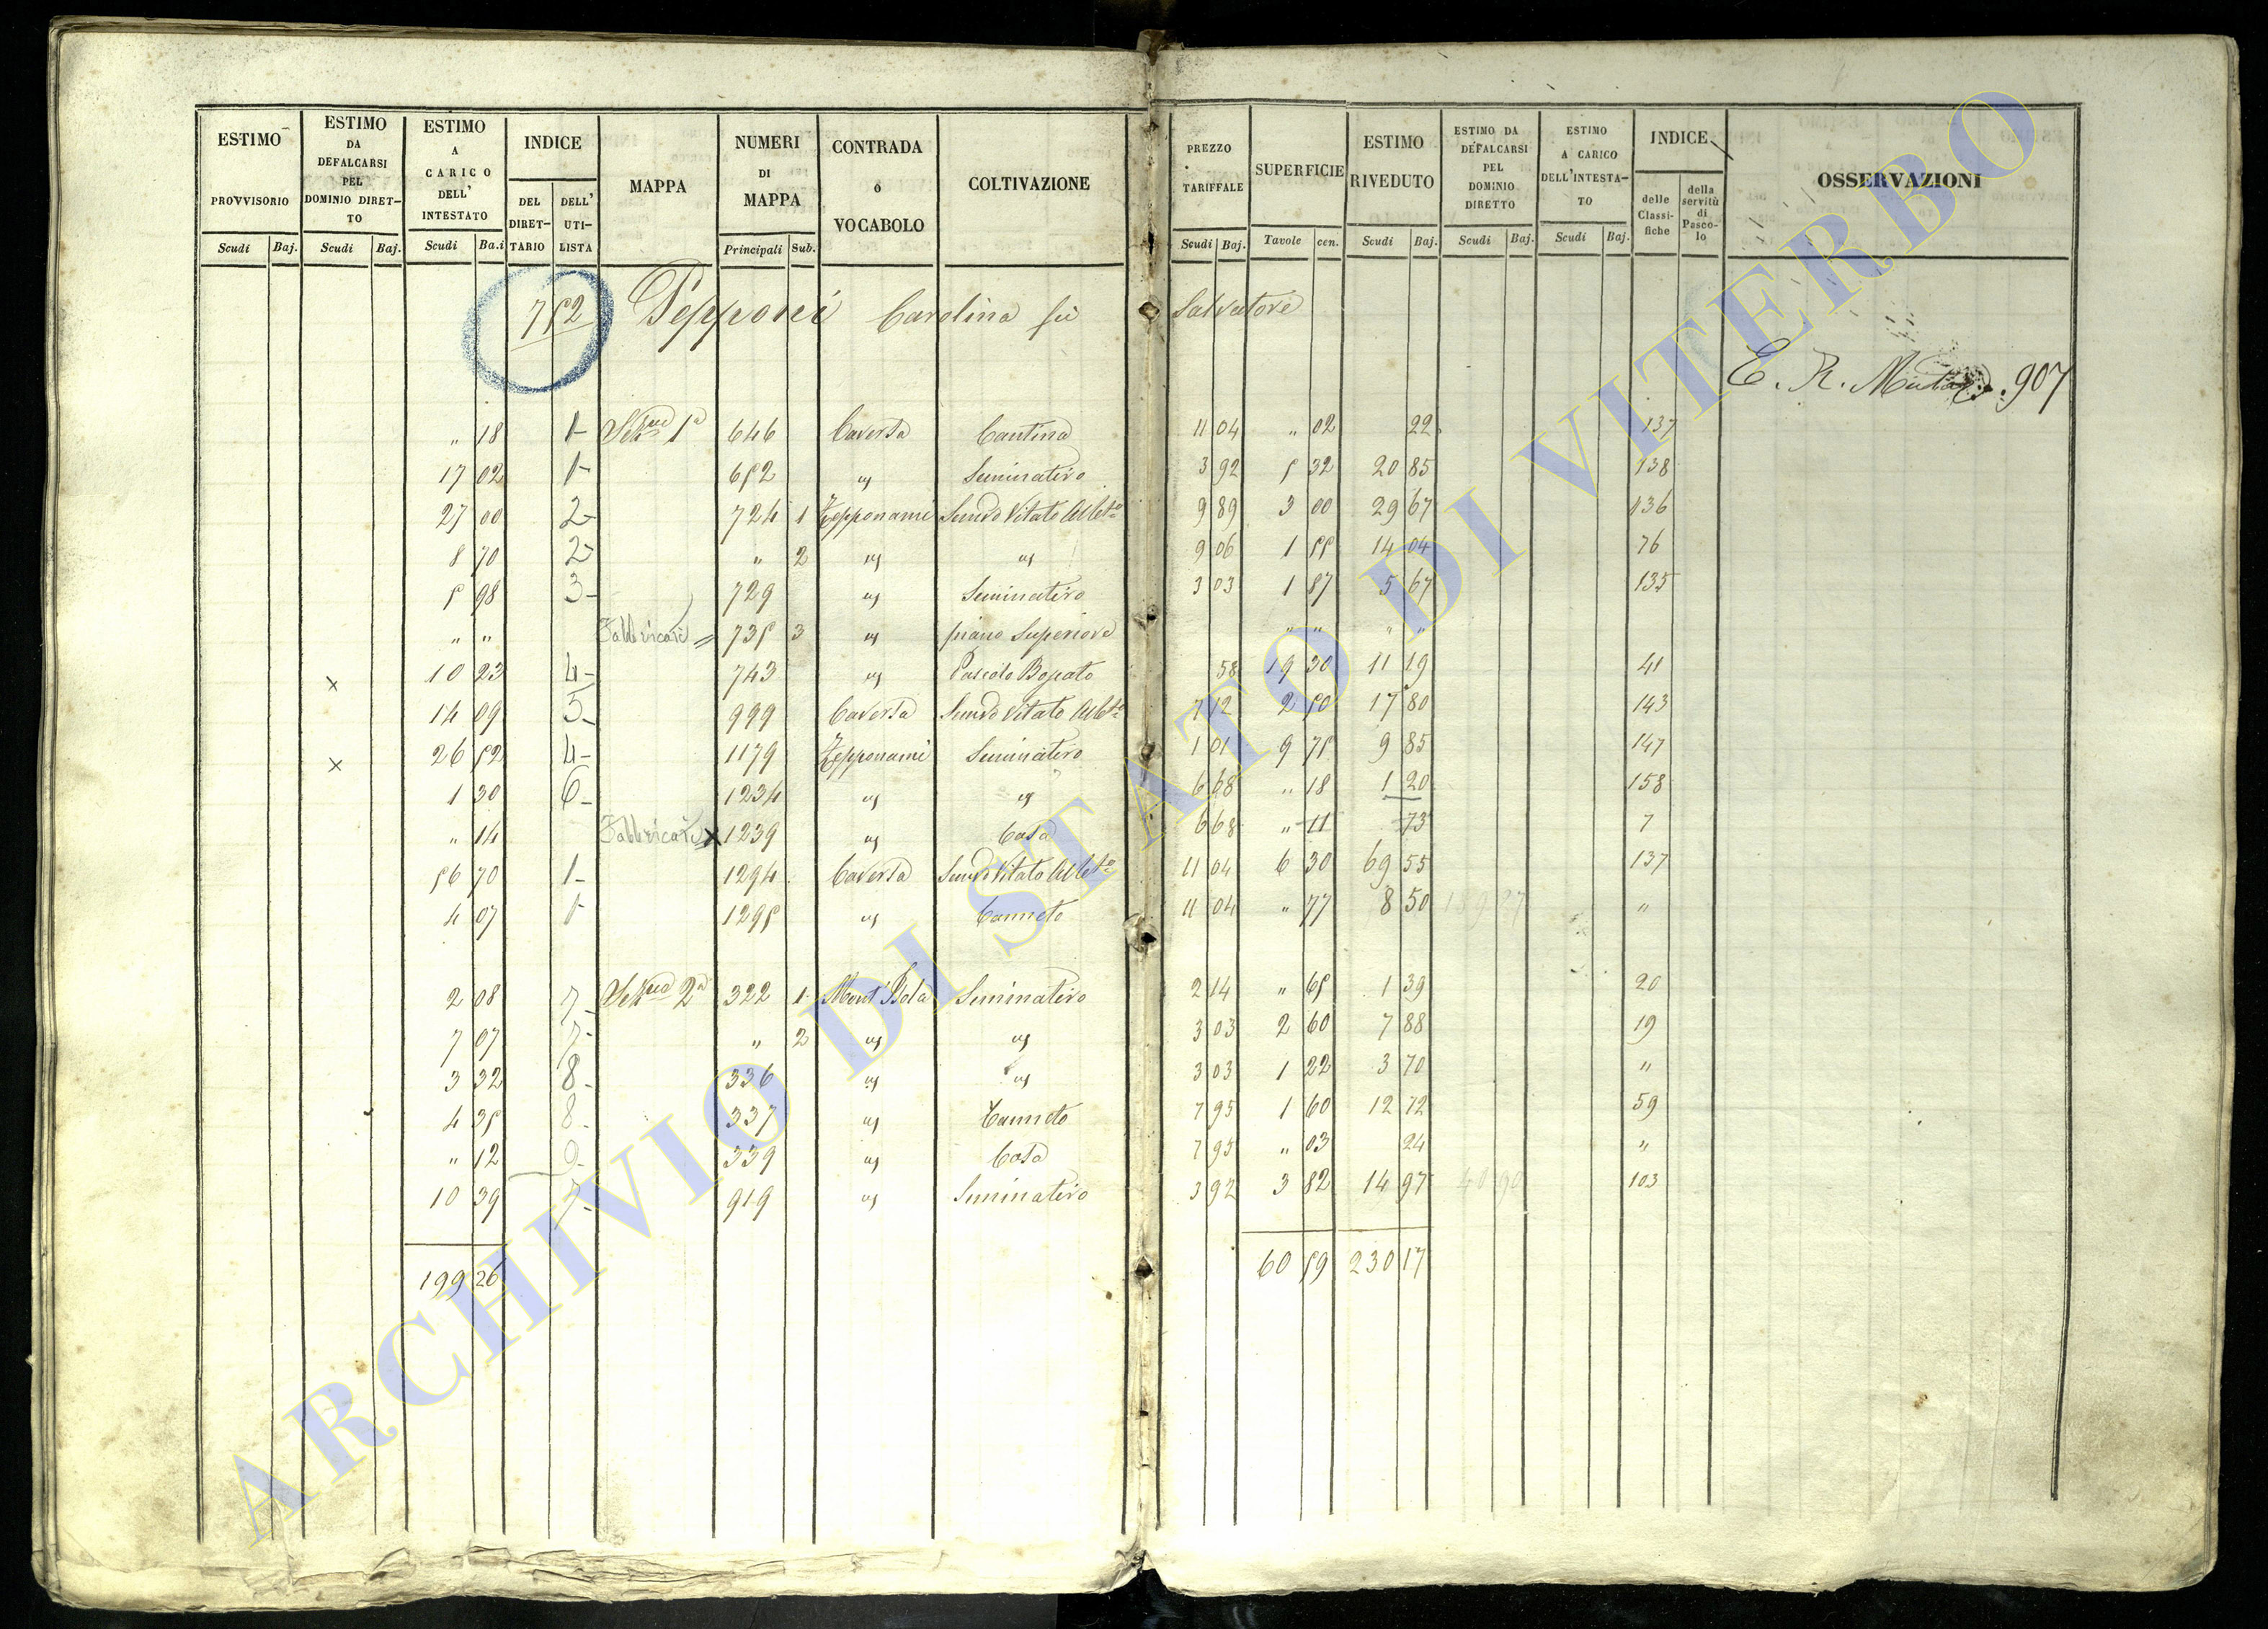 ESTIMO PROVVISORIO Scudi Baj.
ESTIMO DA DEFALCARSI PEL DOMINIO DIRET-TO Scudi Baj.
ESTIMO A CARICO DELL' INTESTATO Scudi Ba.i
INDICE DEL DIRET-TARIO DELL' UTI-LISTA
MAPPA
NUMERI DI MAPPA Principali Sub.
CONTRADA o VOCABOLO
COLTIVAZIONE
PREZZO TARIFFALE Scudi Baj.
SUPERFICIE Tavole cen.
ESTIMO RIVEDUTO Scudi Baj.
ESTIMO DA DEFALCARSI PEL DOMINIO DIRETTO Scudi Baj.
ESTIMO A CARICO DELL'INTESTA-TO Scudi Baj.
INDICE delle Classi-fiche della servitù di Pasco-lo
OSSERVAZIONI
752 Pepponi Carolina fu Salvatore
E. R. 907
" 18 1- 1a 646 Caversa Cantina 11 04 " 02 22 137
17 02 1- 652 " Seminativo 3 92 5 32 20 85 138
27 00 2- 724 1 Zepponami Semvo Vitato Albto 9 89 3 00 29 67 136
8 70 2- " 2 " " 9 06 1 55 14 04 76
5 98 3- 729 " Seminativo 3 03 1 87 5 67 135
" " Fabbricati = 735 3 " piano Superiore " " " "
x 10 23 4- 743 " Pascolo 58 19 30 11 19 41
14 09 5- 999 Caversa Semvo Vitato Albto 7 12 2 50 17 80 143
x 26 52 4- 1179 Zepponami Seminativo 1 01 9 75 9 85 147
1 30 6- 1234 " " 6 68 " 18 1 20 158
" 14 Fabbricati x 1239 " Casa 6 68 " 11 73 7
56 70 1- 1294 Caversa Semvo Vitato Albto 11 04 6 30 69 55 137
4 07 1- 1295 " Canneto 11 04 " 77 8 50 "
2 08 7- 2a 322 1 Seminativo 2 14 " 65 1 39 20
7 07 7- " 2 " " 3 03 2 60 7 88 19
3 32 8- 336 " " 3 03 1 22 3 70 "
4 35 8- 337 " Canneto 7 95 1 60 12 72 59
" 12 9- 339 " Casa 7 95 " 03 24 "
10 39 7- 919 " Seminativo 3 92 3 82 14 97 103
199 26 60 59 230 17
ARCHIVIO DI STATO DI VITERBO